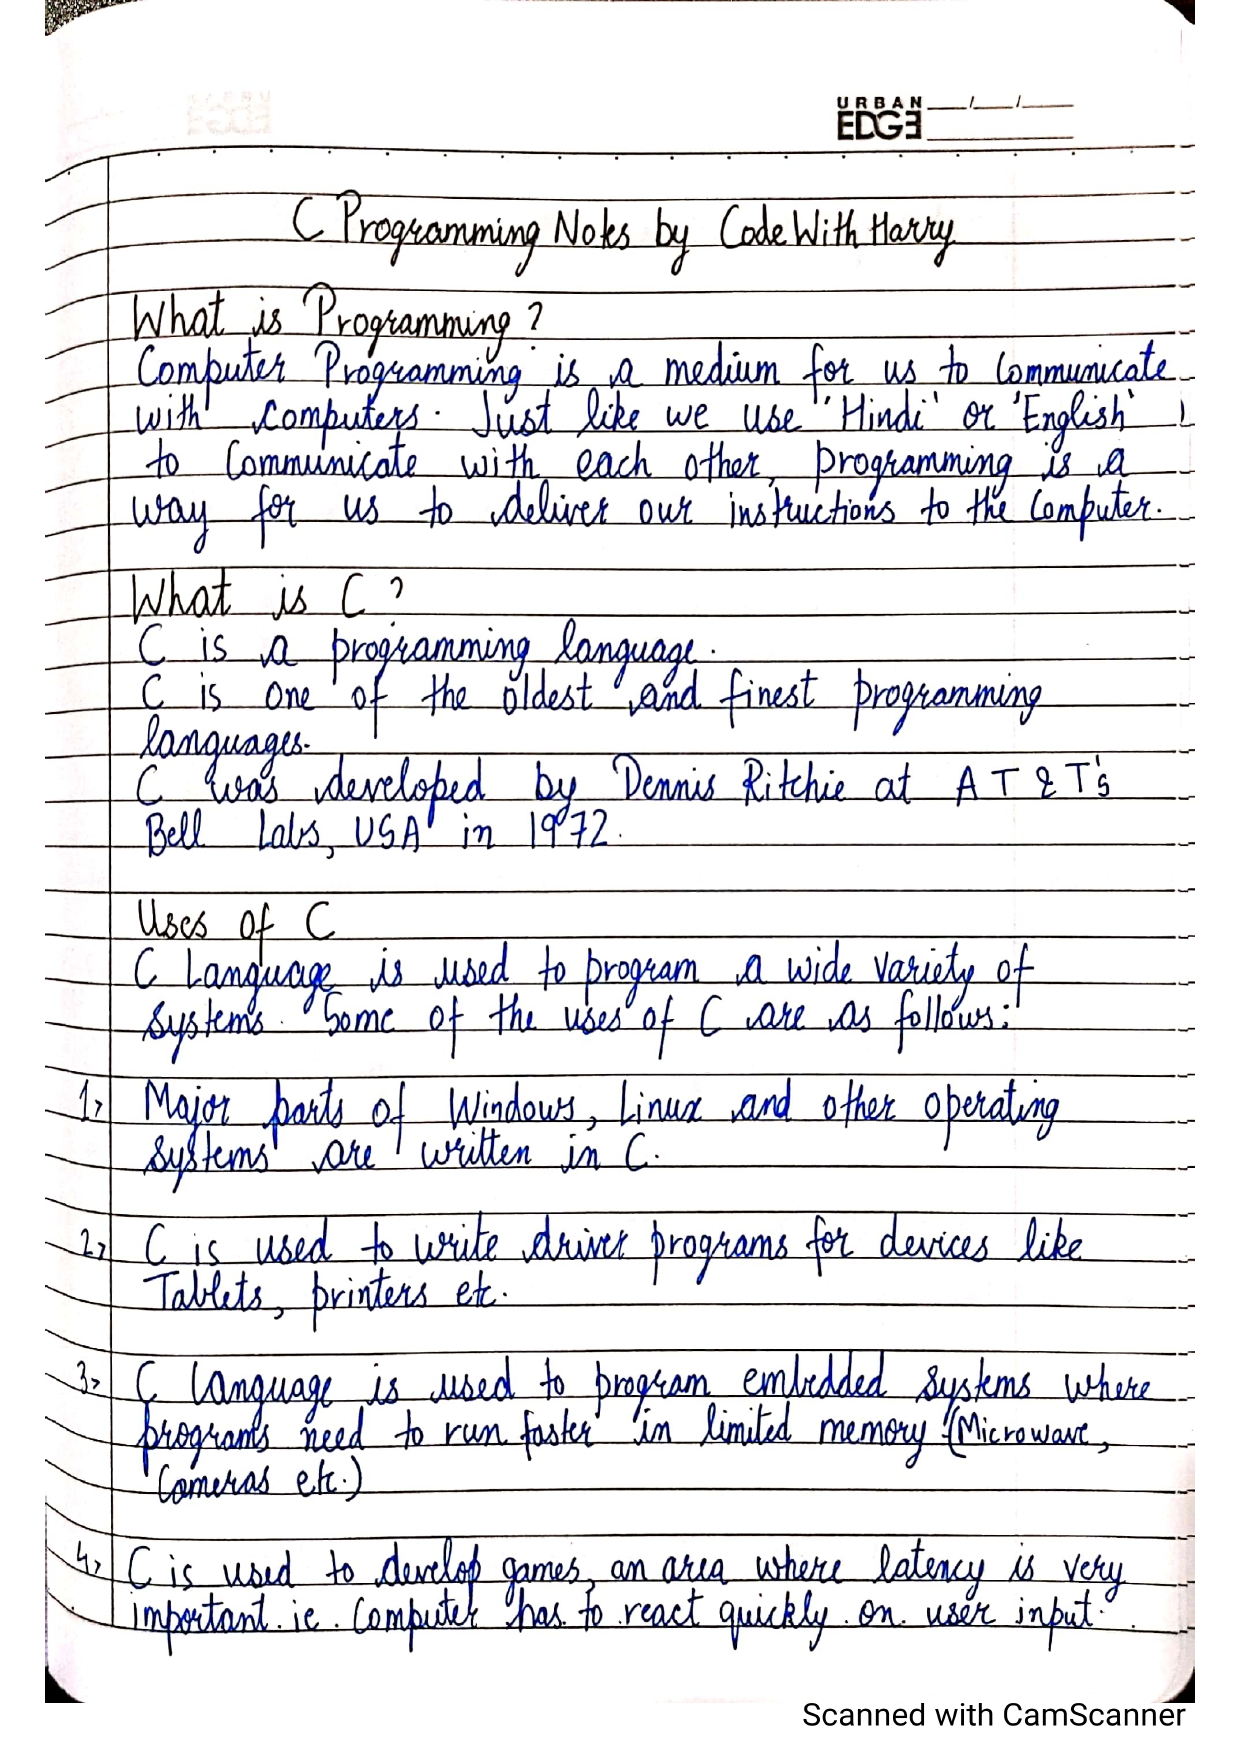 URBAN
EDGE
C Programming Notes by CodeWithHarry
What is Programming?
Computer Programming is a medium for us to Communicate
with computers. Just like we use 'Hindi' or 'English'
to Communicate with each other, programming is a
way for us to deliver our instructions to the Computer.
What is C?
C is a programming language.
C is one of the oldest and finest programming
languages.
C was developed by Dennis Ritchie at AT&T's
Bell Labs, USA in 1972.
Uses of C
C Language is used to program a wide variety of
systems. Some of the uses of C are as follows:
1> Major parts of Windows, Linux and other operating
systems are written in C.
2> C is used to write driver programs for devices like
Tablets, printers etc.
3> C language is used to program embedded systems where
programs need to run faster in limited memory (Microwave,
Cameras etc.)
4> C is used to develop games, an area where latency is very
important. ie. Computer has to react quickly on user input.
Scanned with CamScanner